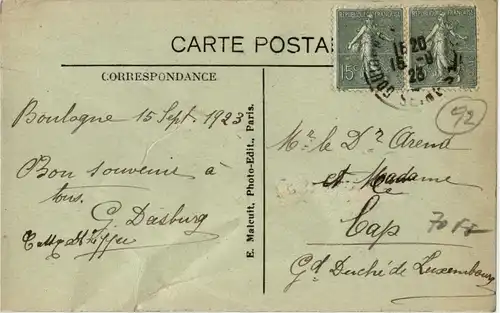 CARTE POSTA
CORRESPONDANCE
Boulogne 15 Sept. 1923
Bon souvenir à
tous.
G. Dasburg
E. Malcuit, Photo-Edit., Paris.
REPUBLIQUE FRANÇAISE
15c
15 20
15 -9
23
92
Mr. le Dr Arend
et Madame
Cap
70 FF
Gd Duché de Luxembourg